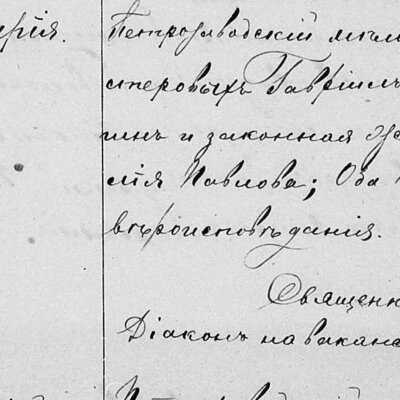 рія.
Петрозаводскій
стеровыхъ Гавріилъ
инъ и законная
лія Павлова; Оба
вѣроисповѣданія.
Священ
Діаконъ на вакан